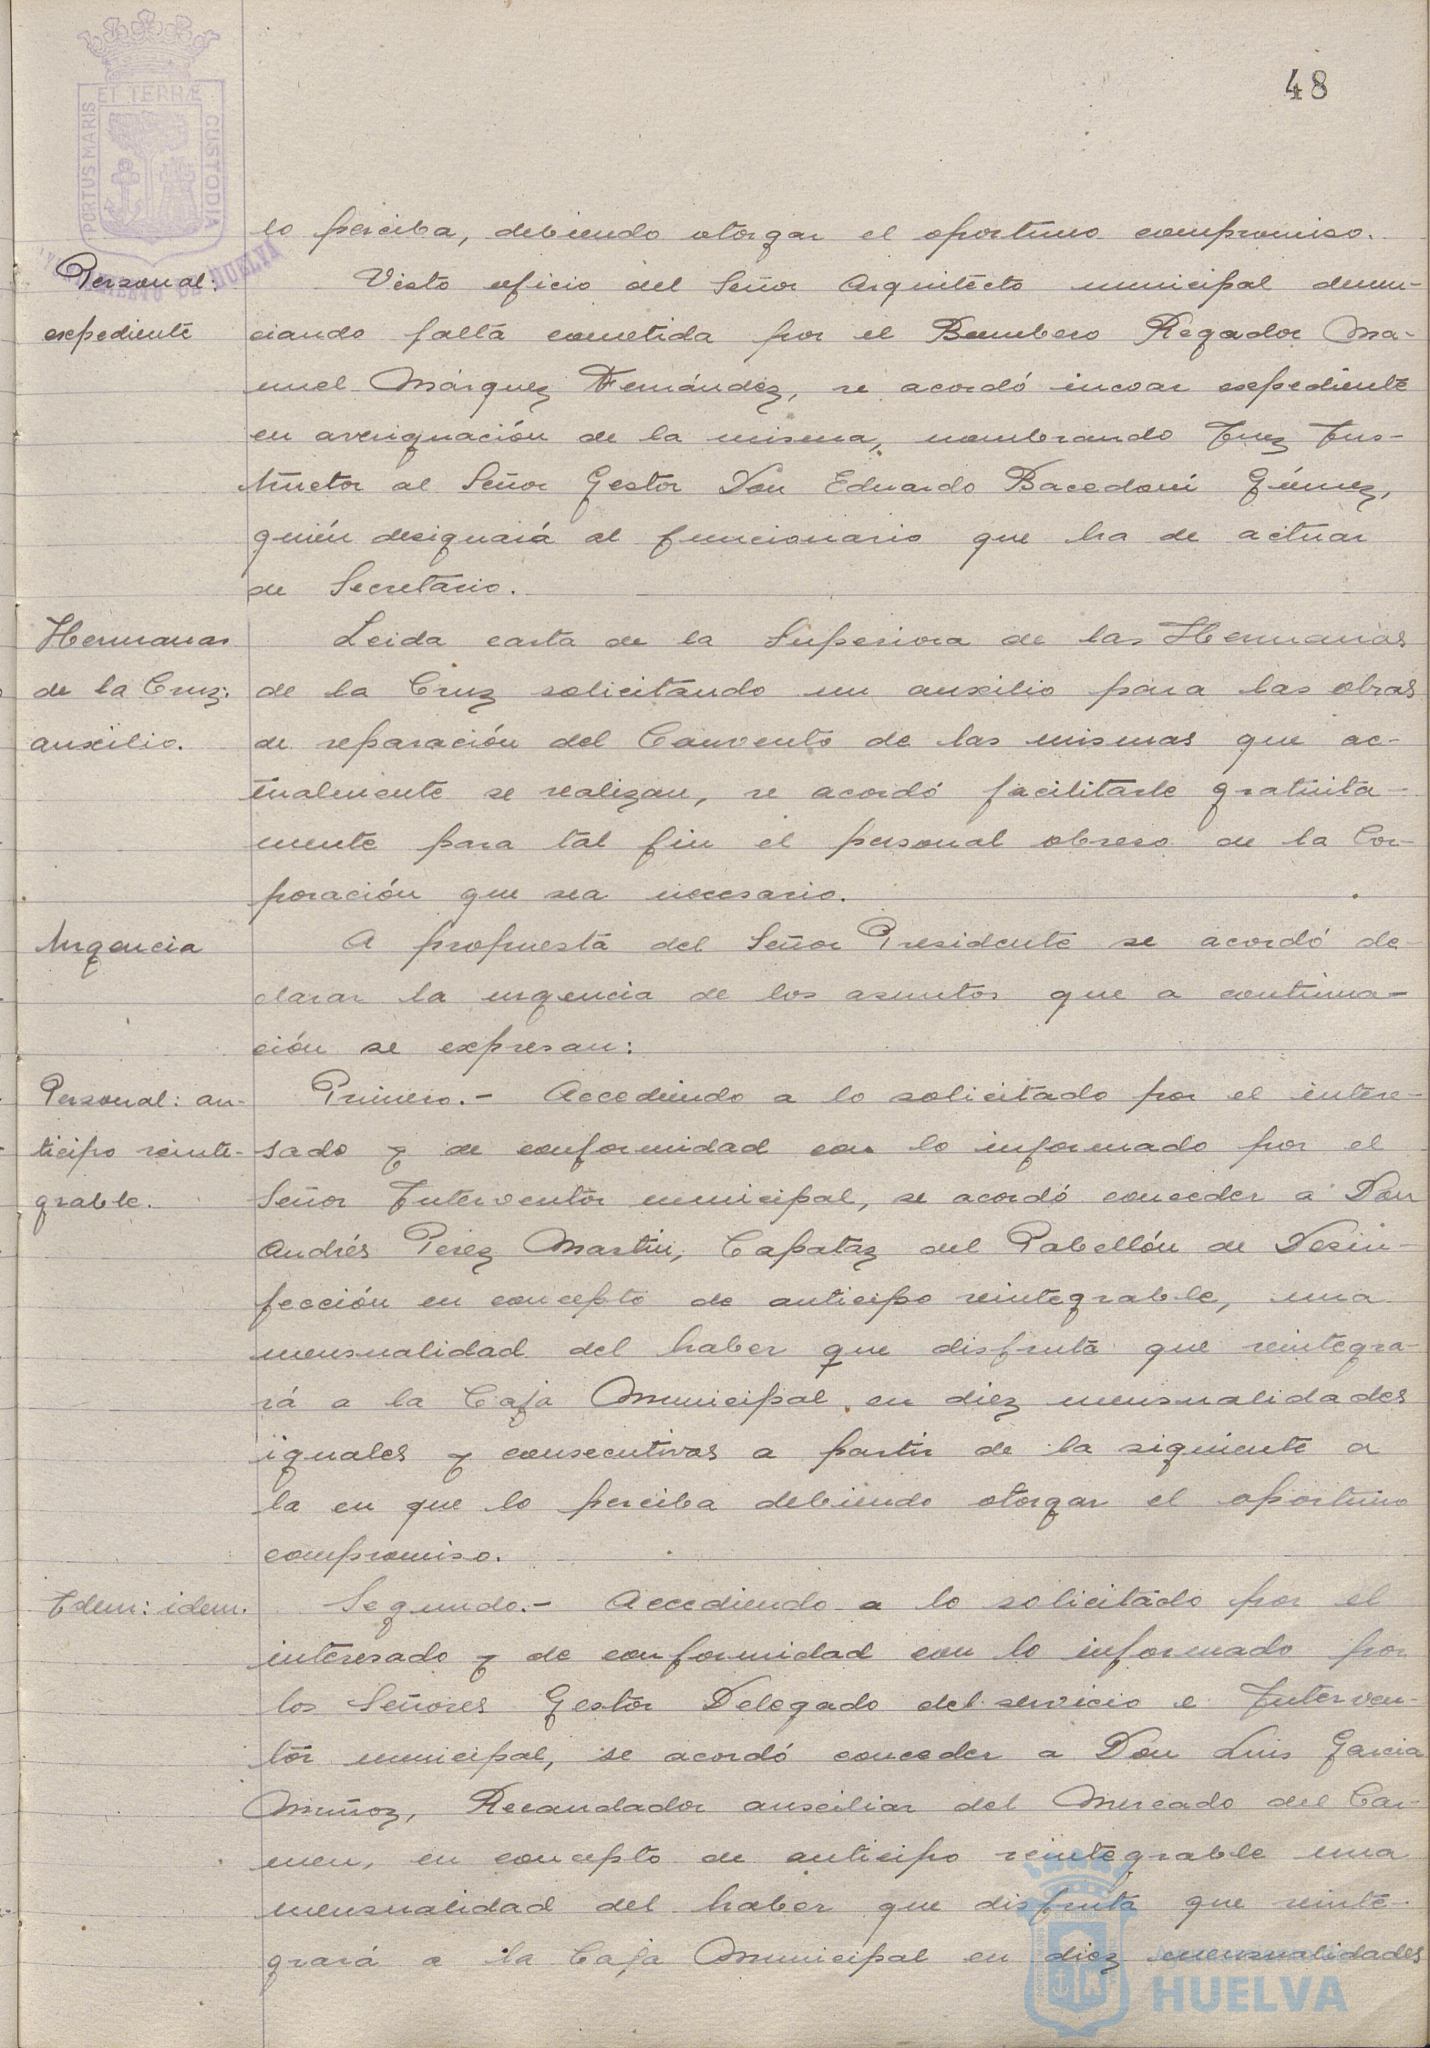 48
PORTUS MARIS ET TERRÆ CUSTODIA
AYUNTAMIENTO DE HUELVA
lo perciba, debiendo otorgar el oportuno compromiso.
Personal: Visto oficio del Señor Arquitecto municipal denun-
expediente ciando falta cometida por el Bombero Regador Ma-
nuel Márquez Fernández, se acordó incoar expediente
en averiguación de la misma, nombrando Juez Ins-
tructor al Señor Gestor Don Eduardo Bacedoni Gómez,
quién designará al funcionario que ha de actuar
de Secretario.
Hermanas Leida carta de la Superiora de las Hermanas
de la Cruz: de la Cruz solicitando un auxilio para las obras
auxilio. de reparación del Convento de las mismas que ac-
tualmente se realizan, se acordó facilitarle gratuita-
mente para tal fin el personal obrero de la Cor-
poración que sea necesario.
Urgencia A propuesta del Señor Presidente se acordó de-
clarar la urgencia de los asuntos que a continua-
ción se expresan:
Personal: an- Primero.- Accediendo a lo solicitado por el intere-
ticipo reinte- sado y de conformidad con lo informado por el
grable. Señor Interventor municipal, se acordó conceder a Don
Andrés Perez Martin, Capataz del Pabellón de Desin-
fección en concepto de anticipo reintegrable, una
mensualidad del haber que disfruta que reintegra-
rá a la Caja Municipal en diez mensualidades
iguales y consecutivas a partir de la siguiente a
la en que lo perciba debiendo otorgar el oportuno
compromiso.
Idem: idem. Segundo.- Accediendo a lo solicitado por el
interesado y de conformidad con lo informado por
los Señores Gestor Delegado del servicio e Interven-
tor municipal, se acordó conceder a Don Luis Garcia
Muñoz, Recaudador auxiliar del Mercado del Car-
men, en concepto de anticipo reintegrable una
mensualidad del haber que disfruta que reinte-
grará a la Caja Municipal en diez mensualidades
HUELVA